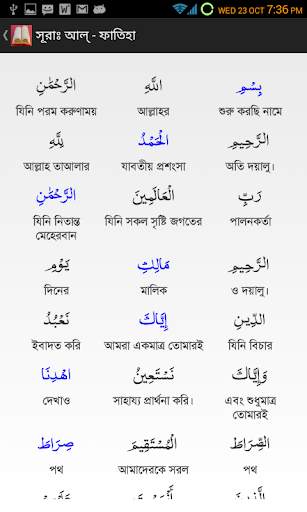 WED 23 OCT 7:36 PM
সূরাঃ আল্ - ফাতিহা
بِسْمِ اللَّهِ الرَّحْمَٰنِ
শুরু করছি নামে আল্লাহর যিনি পরম করুণাময়
الرَّحِيمِ الْحَمْدُ لِلَّهِ
অতি দয়ালু। যাবতীয় প্রশংসা আল্লাহ তাআলার
رَبِّ الْعَالَمِينَ الرَّحْمَٰنِ
পালনকর্তা যিনি সকল সৃষ্টি জগতের যিনি নিতান্ত
মেহেরবান
الرَّحِيمِ مَالِكِ يَوْمِ
ও দয়ালু। মালিক দিনের
الدِّينِ إِيَّاكَ نَعْبُدُ
যিনি বিচার আমরা একমাত্র তোমারই ইবাদত করি
وَإِيَّاكَ نَسْتَعِينُ اهْدِنَا
এবং শুধুমাত্র সাহায্য প্রার্থনা করি। দেখাও
তোমারই
الصِّرَاطَ الْمُسْتَقِيمَ صِرَاطَ
পথ আমাদেরকে সরল পথ